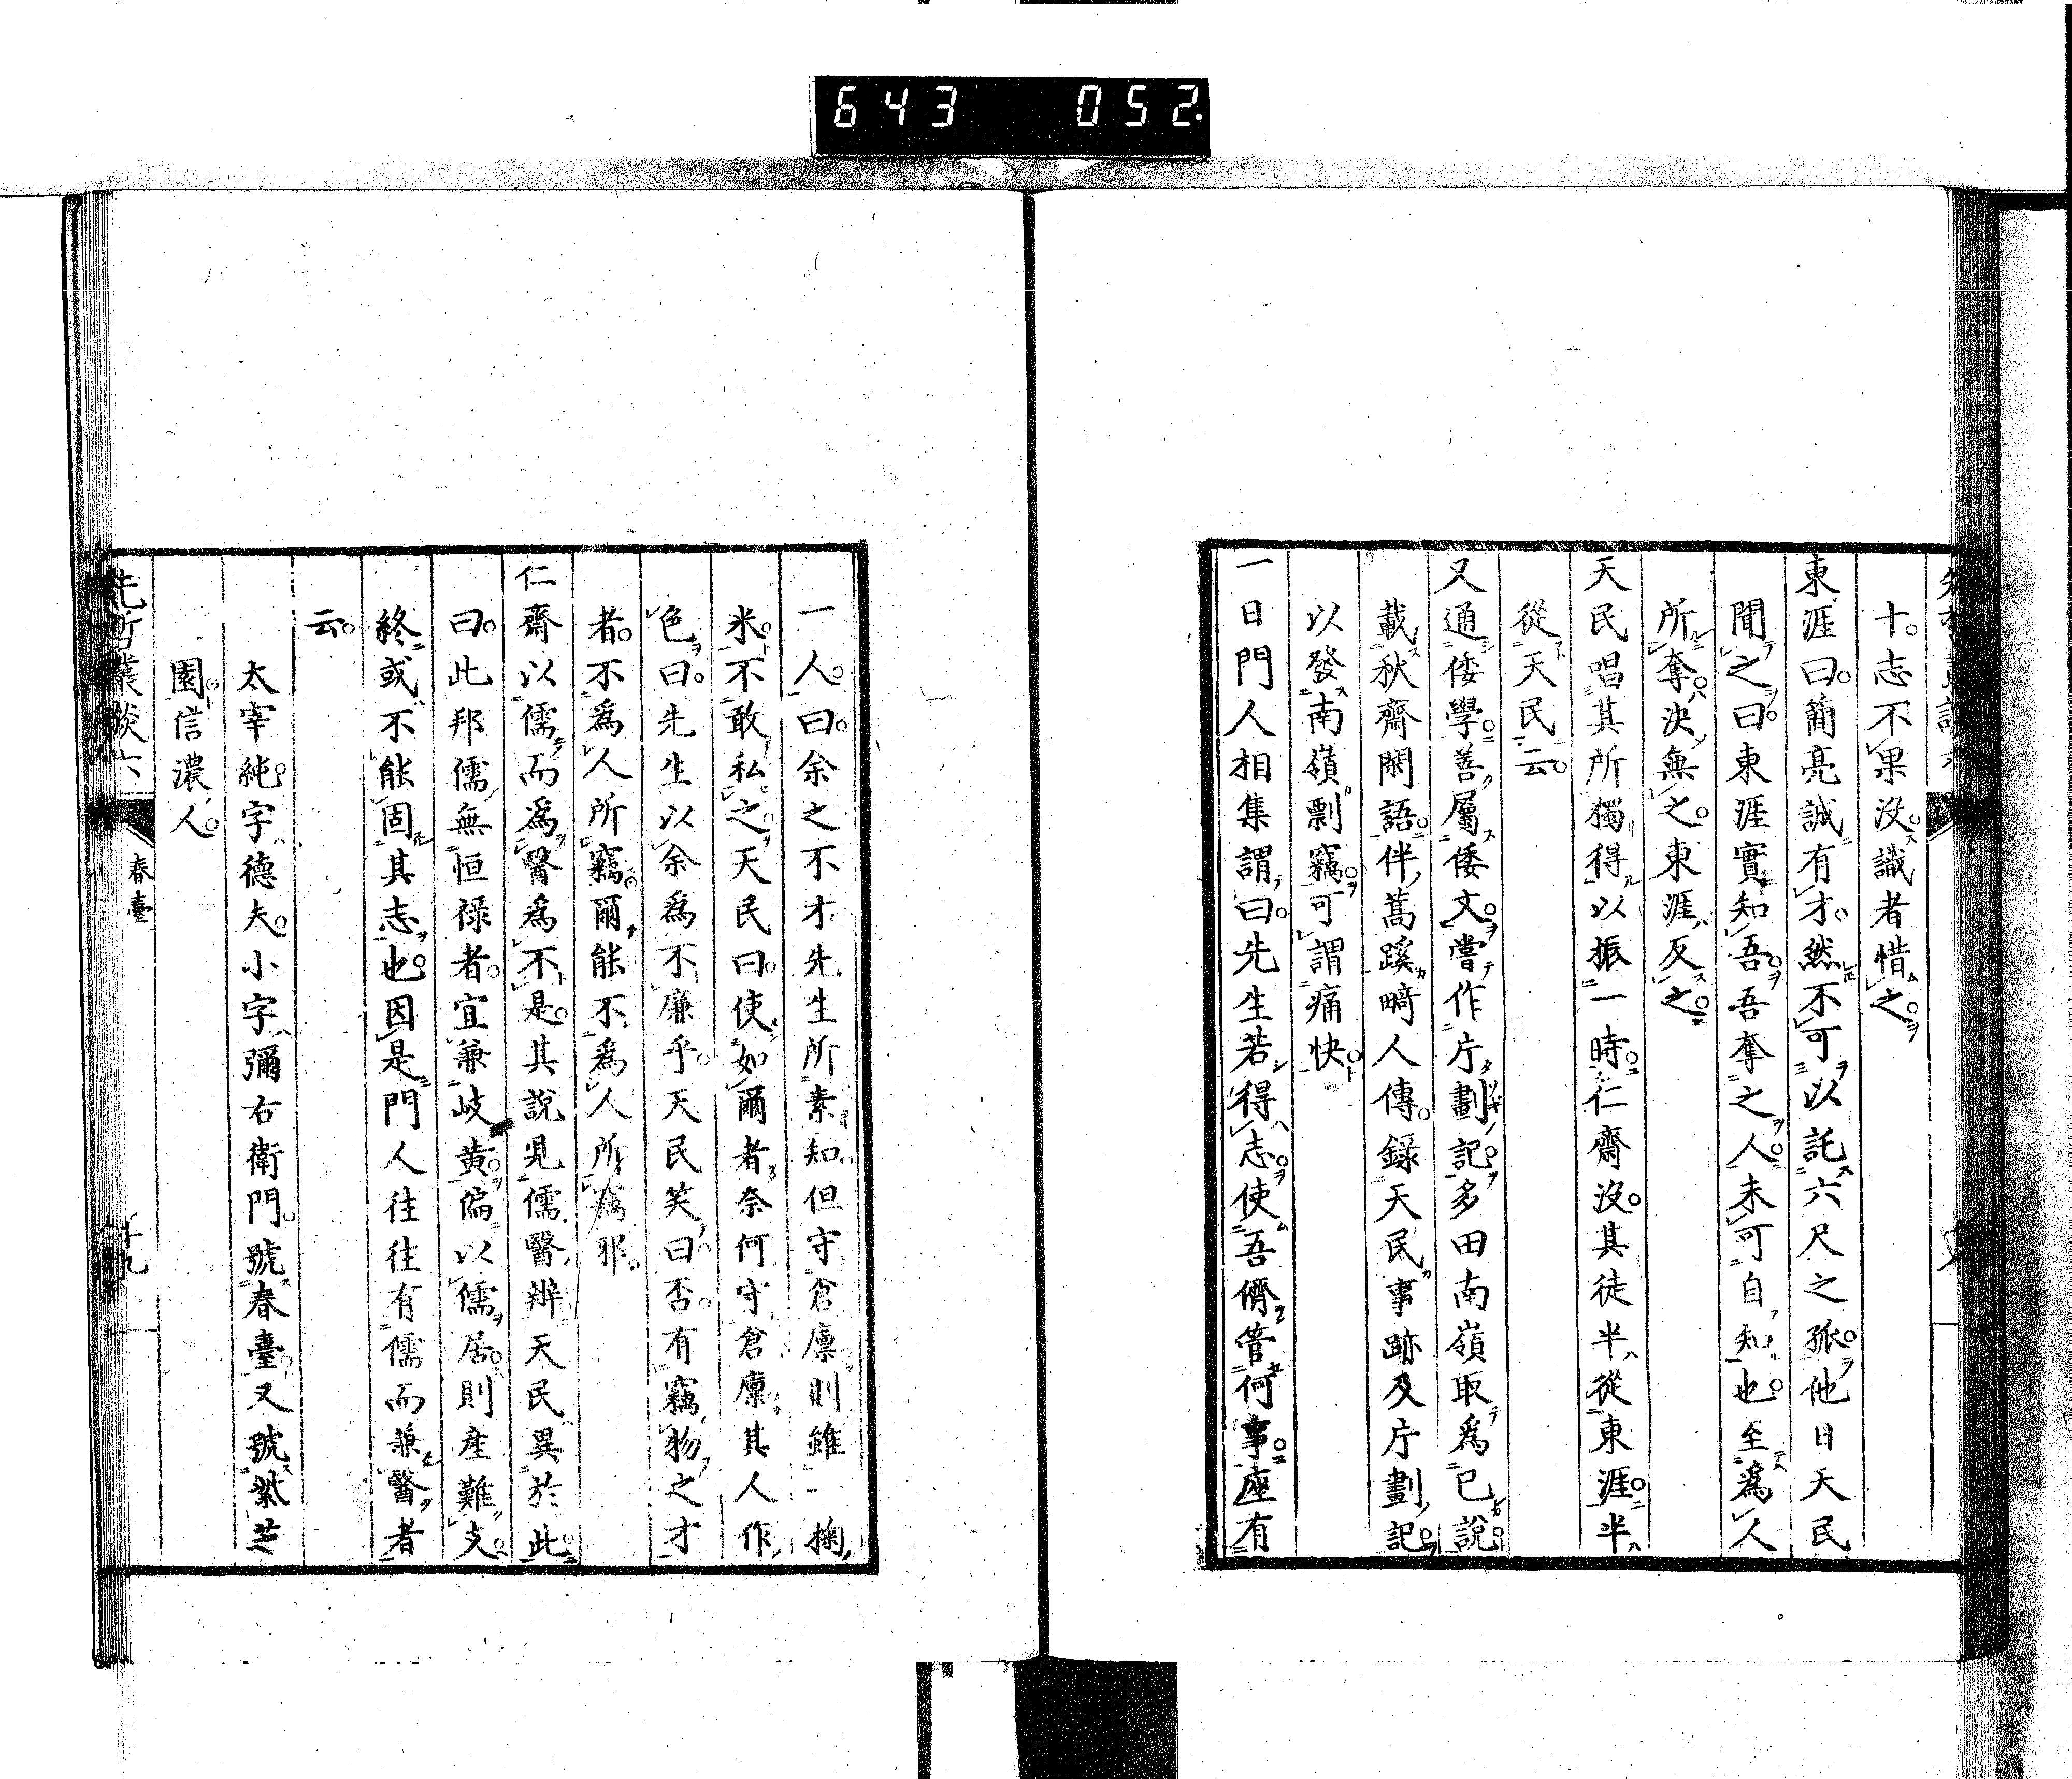 643 052
十。志不果没。識者惜之。
東涯曰。簡亮誠有才。然不可以託六尺之孤。他日天民
聞之曰。東涯實知吾。吾奪之人。未可自知也。至爲人
所奪。決無之。東涯反之。
天民唱其所獨得。以振一時。仁齋没。其徒半從東涯。半
從天民云。
又通倭學。善屬倭文。嘗作庁劃記。多田南嶺取爲已説。
載秋齋閑語。伴蒿蹊畸人傳。録天民事跡及庁劃記。
以發南嶺剽竊。可謂痛快。
一日門人相集謂曰。先生若得志。使吾儕管何事。座有
一人。曰。余之不才先生所素知但守倉廩則雖一掬
米。不敢私之。天民曰。使如爾者奈何守倉廩。其人作
色。曰。先生以余爲不廉乎。天民笑曰。否。有竊物之才
者。不爲人所竊。爾能不爲人所竊邪。
仁齋以儒而爲醫爲不是。其説見儒醫辨天民異於此。
曰。此邦儒無恒禄者。宜兼岐黄。偏以儒居。則産難支。
終或不能固其志也。因是門人往往有儒而兼醫者
云。
太宰純。字德夫。小字彌右衛門。號春臺。又號紫芝
園。信濃人。
先哲叢談六
春臺
十九